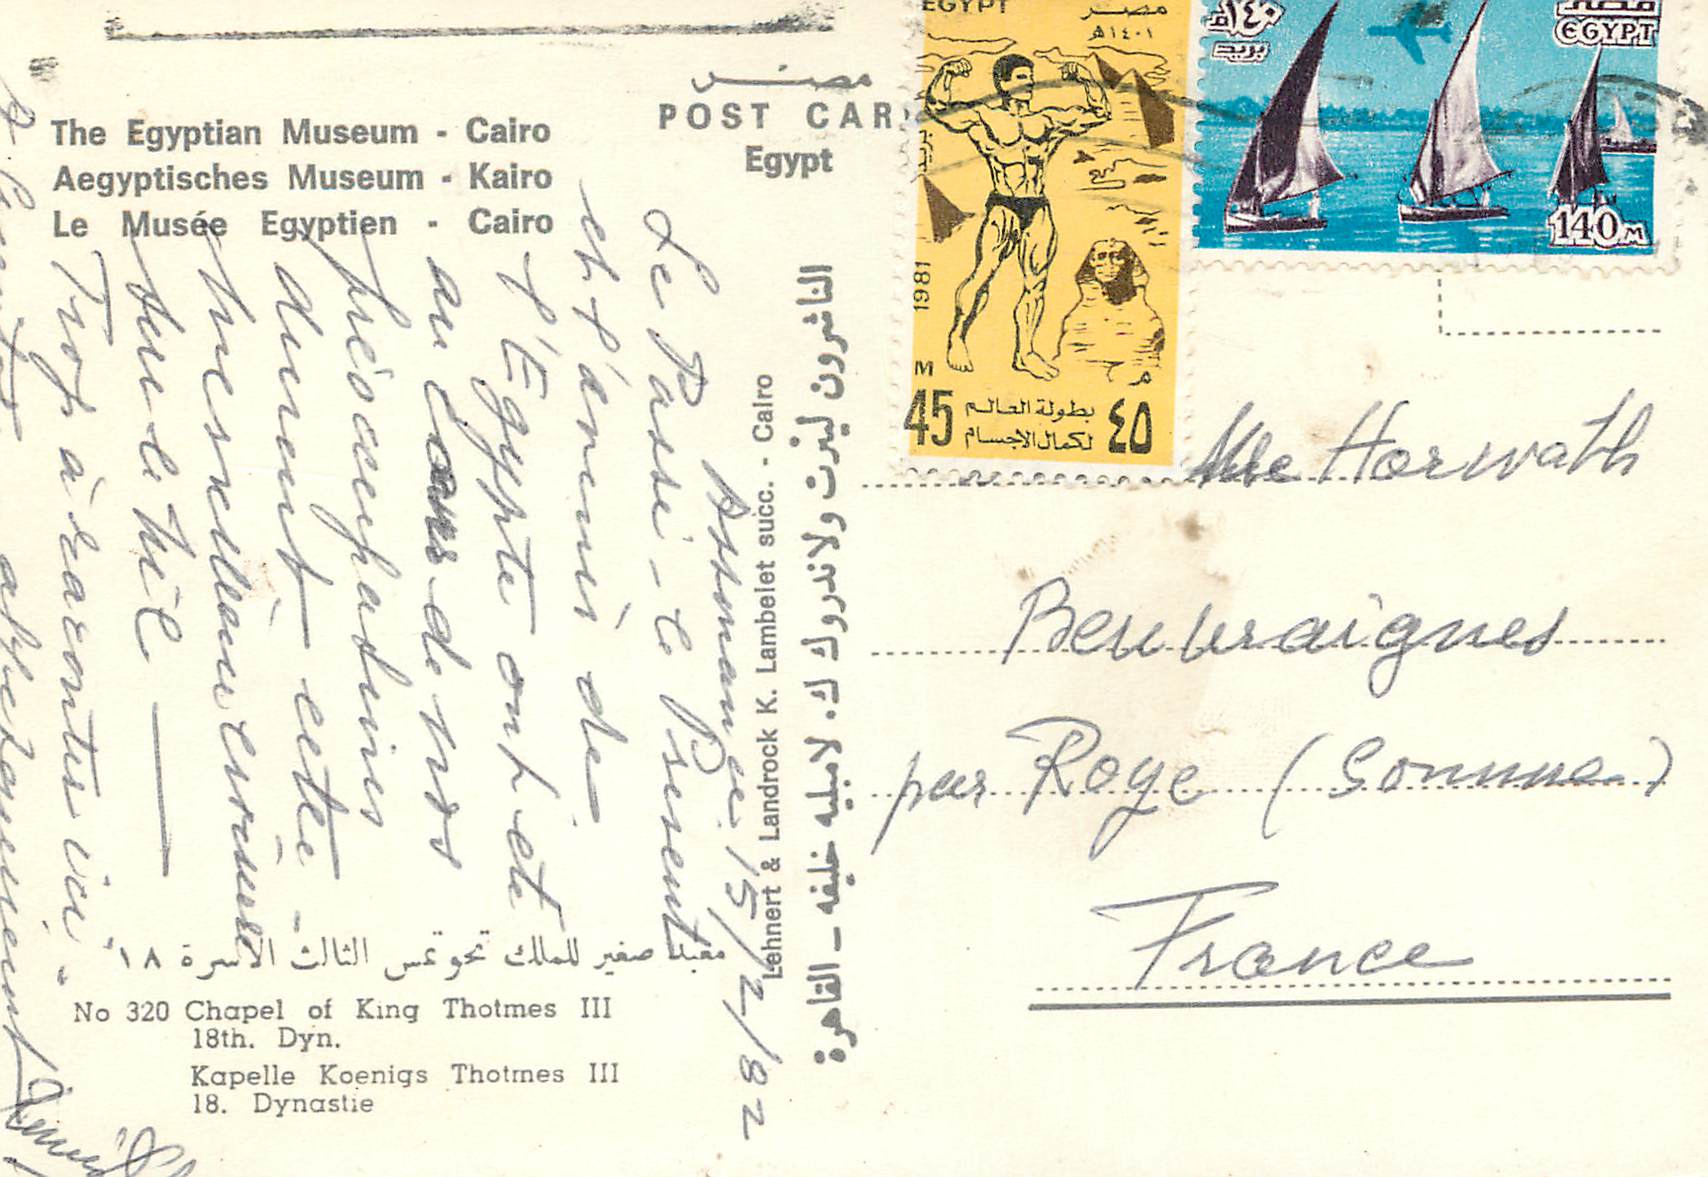 The Egyptian Museum - Cairo
Aegyptisches Museum - Kairo
Le Musée Egyptien - Cairo
مصر
POST CAR
Egypt
EGYPT
مصر
١٤٠١هـ
1981
M
م
45
بطولة العالم
لكمال الاجسام
٤٥
١٤٠م
بريد
مصر
EGYPT
140 M
الناشرون لينرت ولاندروك ك. لامبليه خليفه – القاهرة
Lehnert & Landrock K. Lambelet succ. - Cairo
15/2/82
Le Passé - le Present
et l'avenir de
l'Egypte ont été
au cours de nos
préoccupations
durant cette
merveilleuse croisière
sur le Nil
Trop à raconter ici.
Mme Horwath
Beuvraignes
par Roye (Somme)
France
معبد صغير للملك تحوتمس الثالث الاسرة ١٨
No 320 Chapel of King Thotmes III
18th. Dyn.
Kapelle Koenigs Thotmes III
18. Dynastie